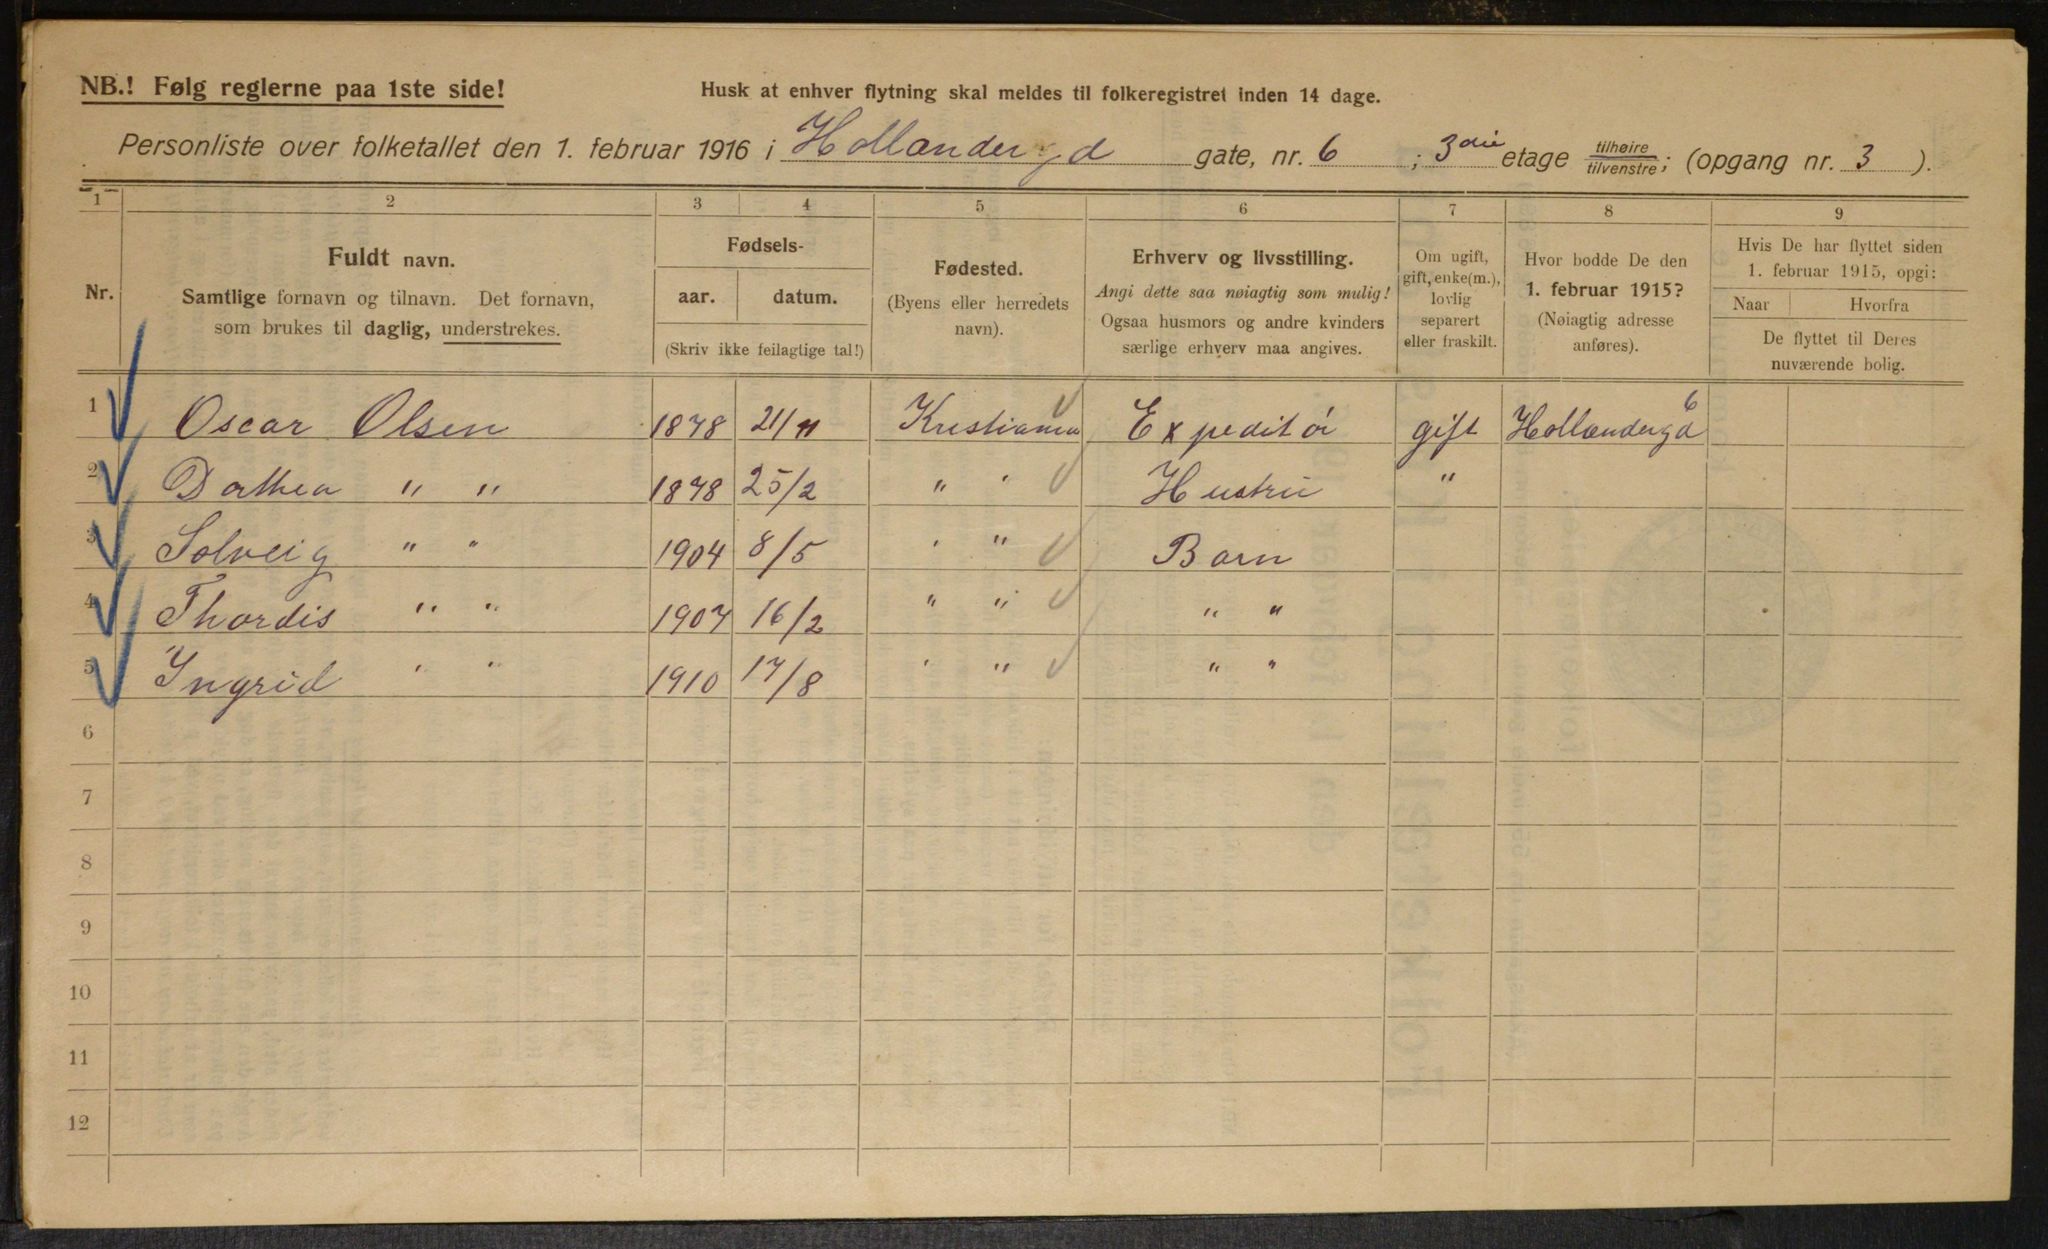 NB.! Følg reglerne paa 1ste side!
Husk at enhver flytning skal meldes til folkeregistret inden 14 dage.
Personliste over folketallet den 1. februar 1916 i Hollændergd gate, nr. 6 ; 3die etage tilhøire/tilvenstre; (opgang nr. 3 ).
1 2 3 4 5 6 7 8 9
Nr.
Fuldt navn.
Samtlige fornavn og tilnavn. Det fornavn,
som brukes til daglig, understrekes.
Fødsels-
aar. datum.
(Skriv ikke feilagtige tal!)
Fødested.
(Byens eller herredets
navn).
Erhverv og livsstilling.
Angi dette saa nøiagtig som mulig!
Ogsaa husmors og andre kvinders
særlige erhverv maa angives.
Om ugift,
gift, enke(m.),
lovlig
separert
eller fraskilt.
Hvor bodde De den
1. februar 1915?
(Nøiagtig adresse
anføres).
Hvis De har flyttet siden
1. februar 1915, opgi:
Naar Hvorfra
De flyttet til Deres
nuværende bolig.
1 Oscar Olsen 1878 21/11 Kristiania Expeditör gift Hollændergd 6
2 Dorthea " " 1878 25/2 " " Hustru "
3 Solveig " " 1904 8/5 " " Barn
4 Thordis " " 1907 16/2 " " " "
5 Yngrid " " 1910 17/8 " " " "
6
7
8
9
10
11
12